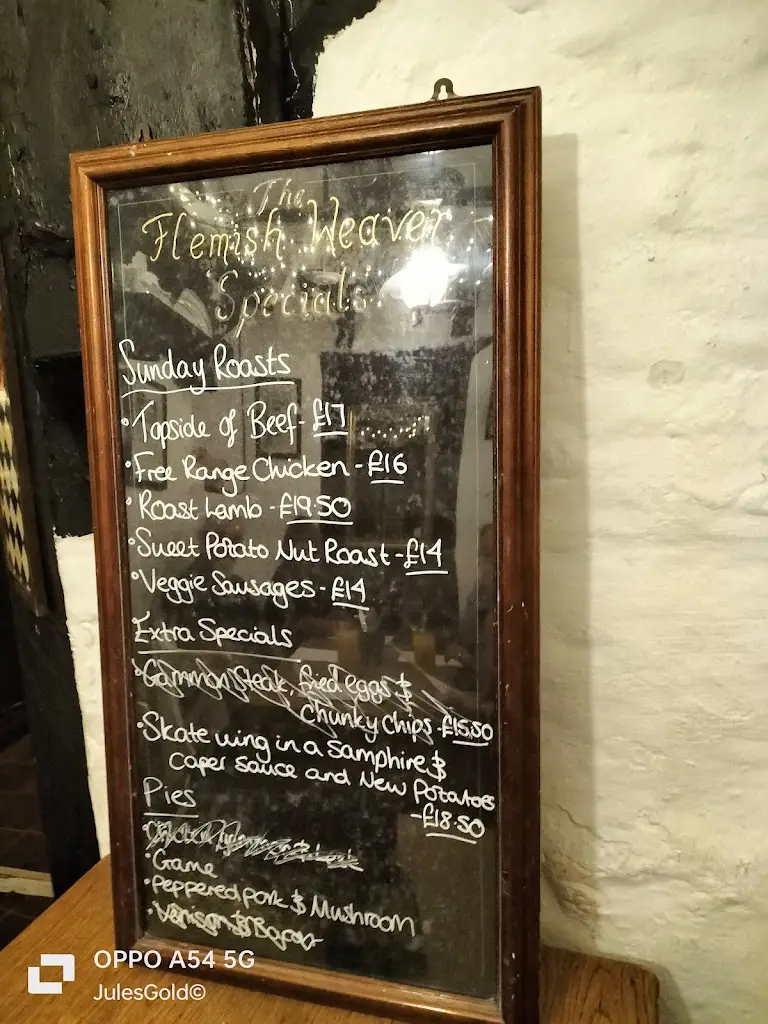 The
Flemish Weaver
Specials
Sunday Roasts
• Topside of Beef - £17
• Free Range Chicken - £16
• Roast Lamb - £19.50
• Sweet Potato Nut Roast - £14
• Veggie Sausages - £14
Extra Specials
• Gammon Steak, fried eggs &
Chunky Chips - £15.50
• Skate wing in a Samphire &
Caper Sauce and New Potatoes
- £18.50
Pies
• Game
• Peppered pork & Mushroom
• Venison & Bacon
OPPO A54 5G
JulesGold©